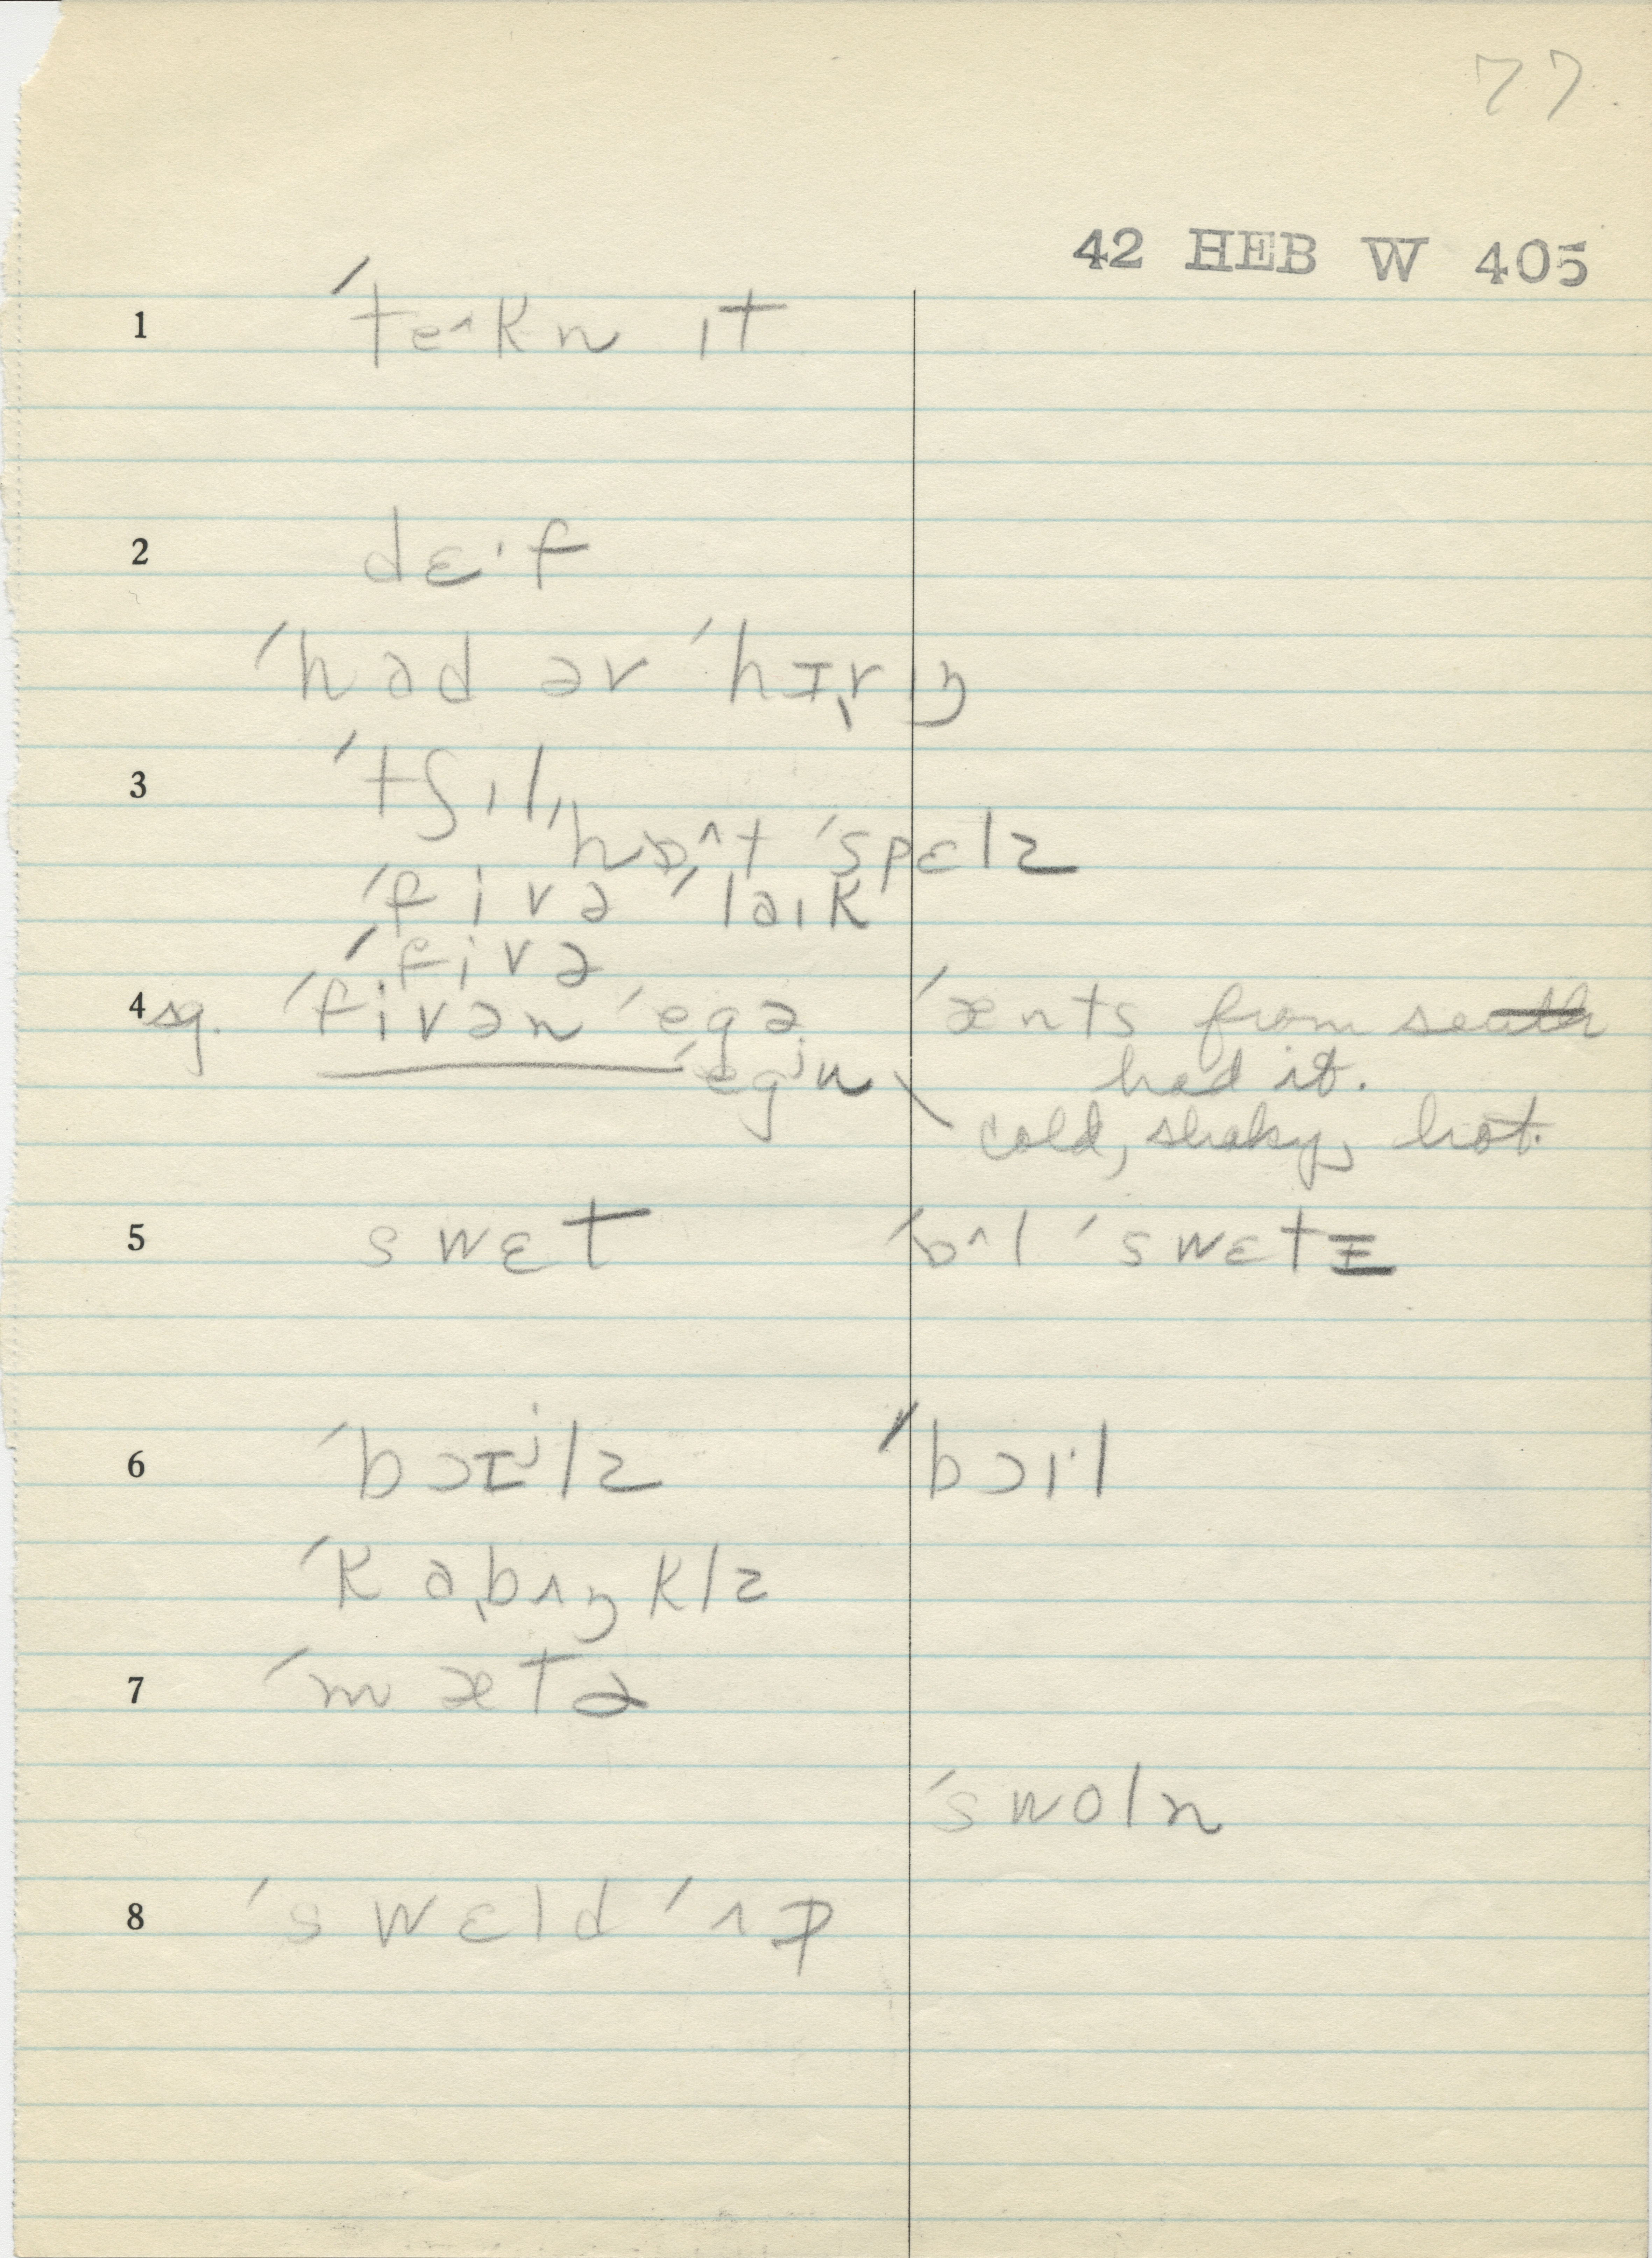 77
42 HEB W 405
1 ˈteˆkn ɪt
2 dɛ·f
ˈhɑd əv ˈhɪ̞rɪŋ
3 ˈtʃɪl,
hɒˆt ˈspɛlz
ˈfivə ˈlaɪk
ˈfivə
4 sg. ˈfivən ˈegə ˈænts from south
ˈegʲn had it.
cold, shaky, hot.
5 swɛt ˈɒˆl ˈswɛtɪ
6 ˈbɔɪʲlz ˈbɔɪ·l
ˈkɑˌbʌŋklz
7 ˈmætə
ˈswoln
8 ˈswɛld ˈʌp